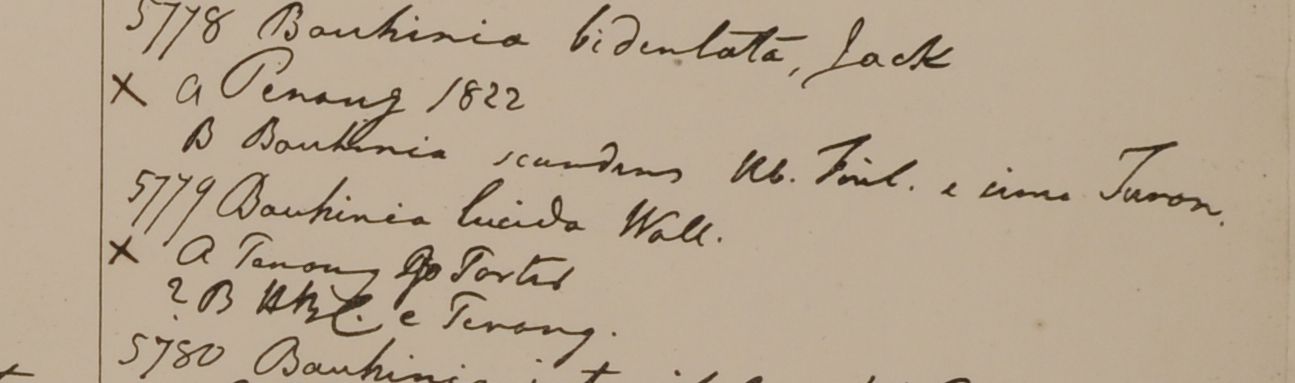 5778 Bauhinia bidentata, Jack
X a Penang 1822
B Bauhinia scandens Hb. Finl. e Turon.
5779 Bauhinia lucida Wall.
X a Penang Porter
? B e Penang.
5780 Bauhinia